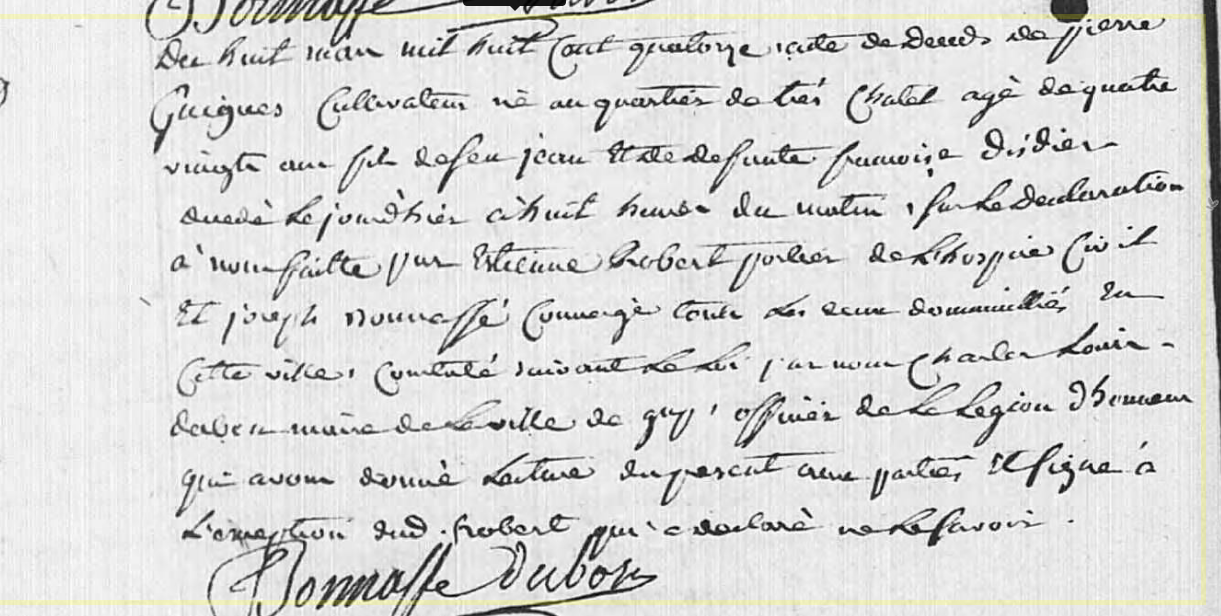 Du huit mars mil huit Cent quatorze acte de deces de pierre
Guigues Cultivateur né au quartier de tres Chatel agé de quatre
vingts ans fils de feu jean Et de defunte francoise Didier
decedé Le jourd'hier à huit heures du matin, sur La declaration
à nous faitte par Etienne Robert portier de L'hospice Civil
Et joseph Bonnasse Concierge touts Les deux domicilliés En
Cette ville, Constaté suivant La Loi par nous Charles Louis
maire de La ville de gap, officier de La Legion d'honneur
qui avons donné Lecture du present aux parties Et signé à
L'exception dud. Robert qui a declaré ne Le savoir.
Bonnasse Dubois